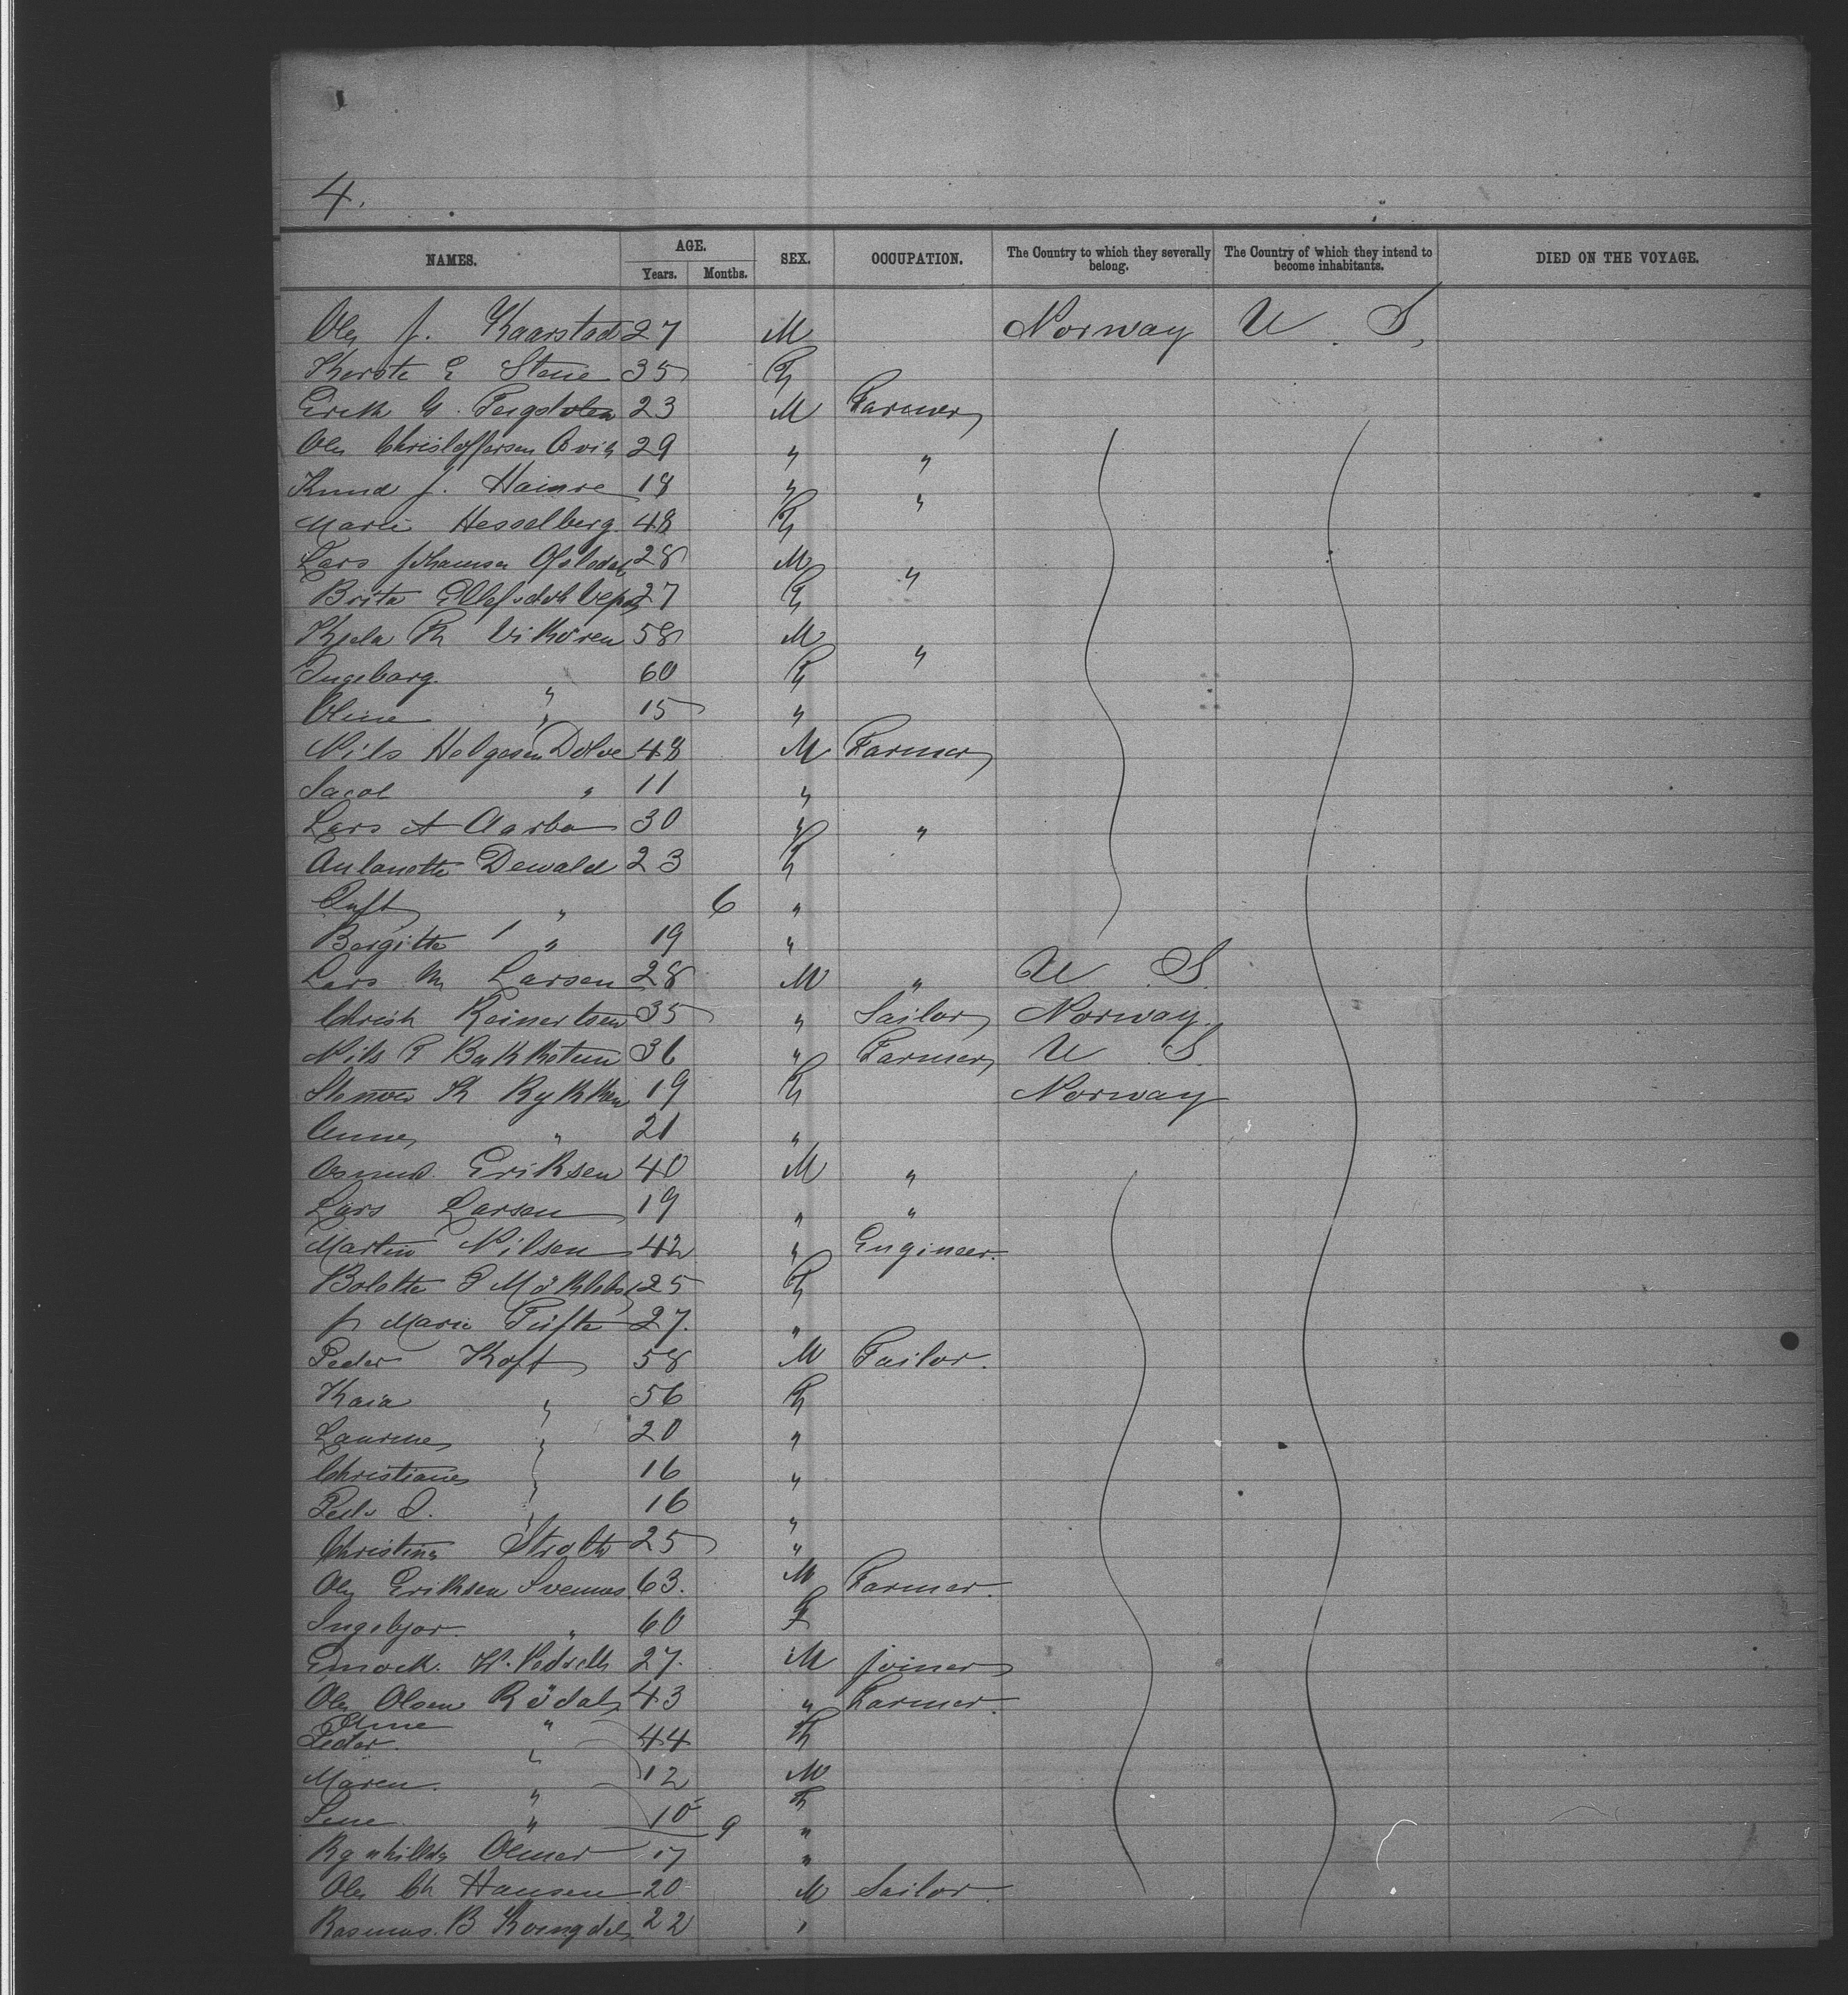 4.
NAMES. AGE. Years. Months. SEX. OCCUPATION. The Country to which they severally belong. The Country of which they intend to become inhabitants. DIED ON THE VOYAGE.
Ole J. Kaarstad 27 M Norway U S,
Kerste E Stene 35 F
Erik G. 23 M Farmer
Ole Christoffersen 29 " "
Knud J. Hainre 18 " "
Marie Hesselberg 48 F
Lars Johansen 28 M "
Brita 27 F
R Vikören 58 M "
Ingeborg " 60 F
Oline " 15 "
Nils Helgesen Dolve 48 M Farmer
Jacob " 11 "
Lars A Aarbo 30 " "
Dewald 23 F
" 6 "
Bergitte " 19 "
Lars M Larsen 28 M " U S
Christ Reinertsen 35 " Sailor Norway
Nils P Bakketun 36 " Farmer U S
K Rykken 19 F Norway
Anne " 21 "
Eriksen 40 M "
Lars Larsen 19 " "
Martin Nilsen 42 " Engineer.
Bolette P 25 F
J Marie Tufte 27. "
Peder Koft 58 M Tailor.
Kaia " 56 F
Laurine " 20 "
Christiane " 16 "
" 16 "
Christina 25 "
Ole Eriksen 63. M Farmer.
Ingebjor. " 60 F
27. M joiner
Ole Olsen Rödal 43 " Farmer.
"
Peder. " 44 F
Maren. " 12 M
" 10 9 F
Olmer 17 "
Ole Ch Hansen 20 M Sailor.
Rasmus. B 22 "